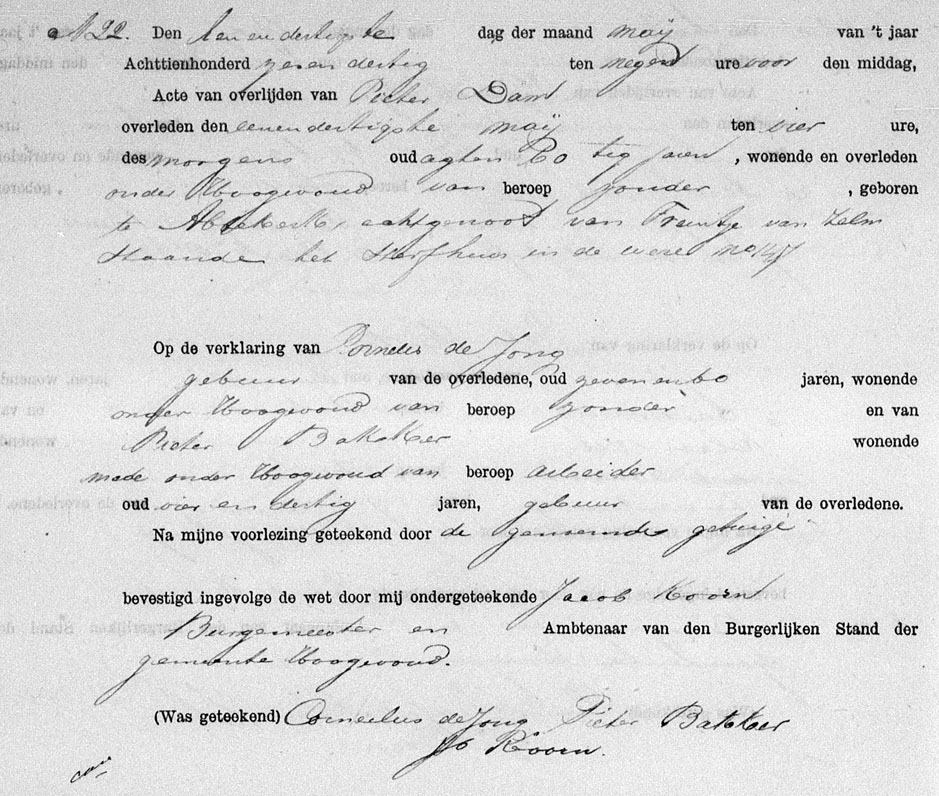 N 22. Den een en dertigste dag der maand maij van 't jaar
Achttienhonderd zes en dertig ten negen ure voor den middag,
Acte van overlijden van Pieter Dam
overleden den eenendertigste maij ten vier ure,
des morgens oud jaren, wonende en overleden
onder Hoogwoud van beroep zonder, geboren
te Abbekerk, echtgenoot van Trentje van Zelm
staande het sterfhuis in de weere no
Op de verklaring van Cornelis de Jong
gebuur van de overledene, oud jaren, wonende
onder Hoogwoud van beroep zonder en van
Pieter Bakker wonende
mede onder Hoogwoud van beroep arbeider
oud vier en dertig jaren, gebuur van de overledene.
Na mijne voorlezing geteekend door de gemelde getuige
bevestigd ingevolge de wet door mij ondergeteekende Jacob Koorn
Burgemeester en Ambtenaar van den Burgerlijken Stand der
gemeente Hoogwoud.
(Was geteekend) Cornelius de Jong Pieter Bakker
Jb Koorn.